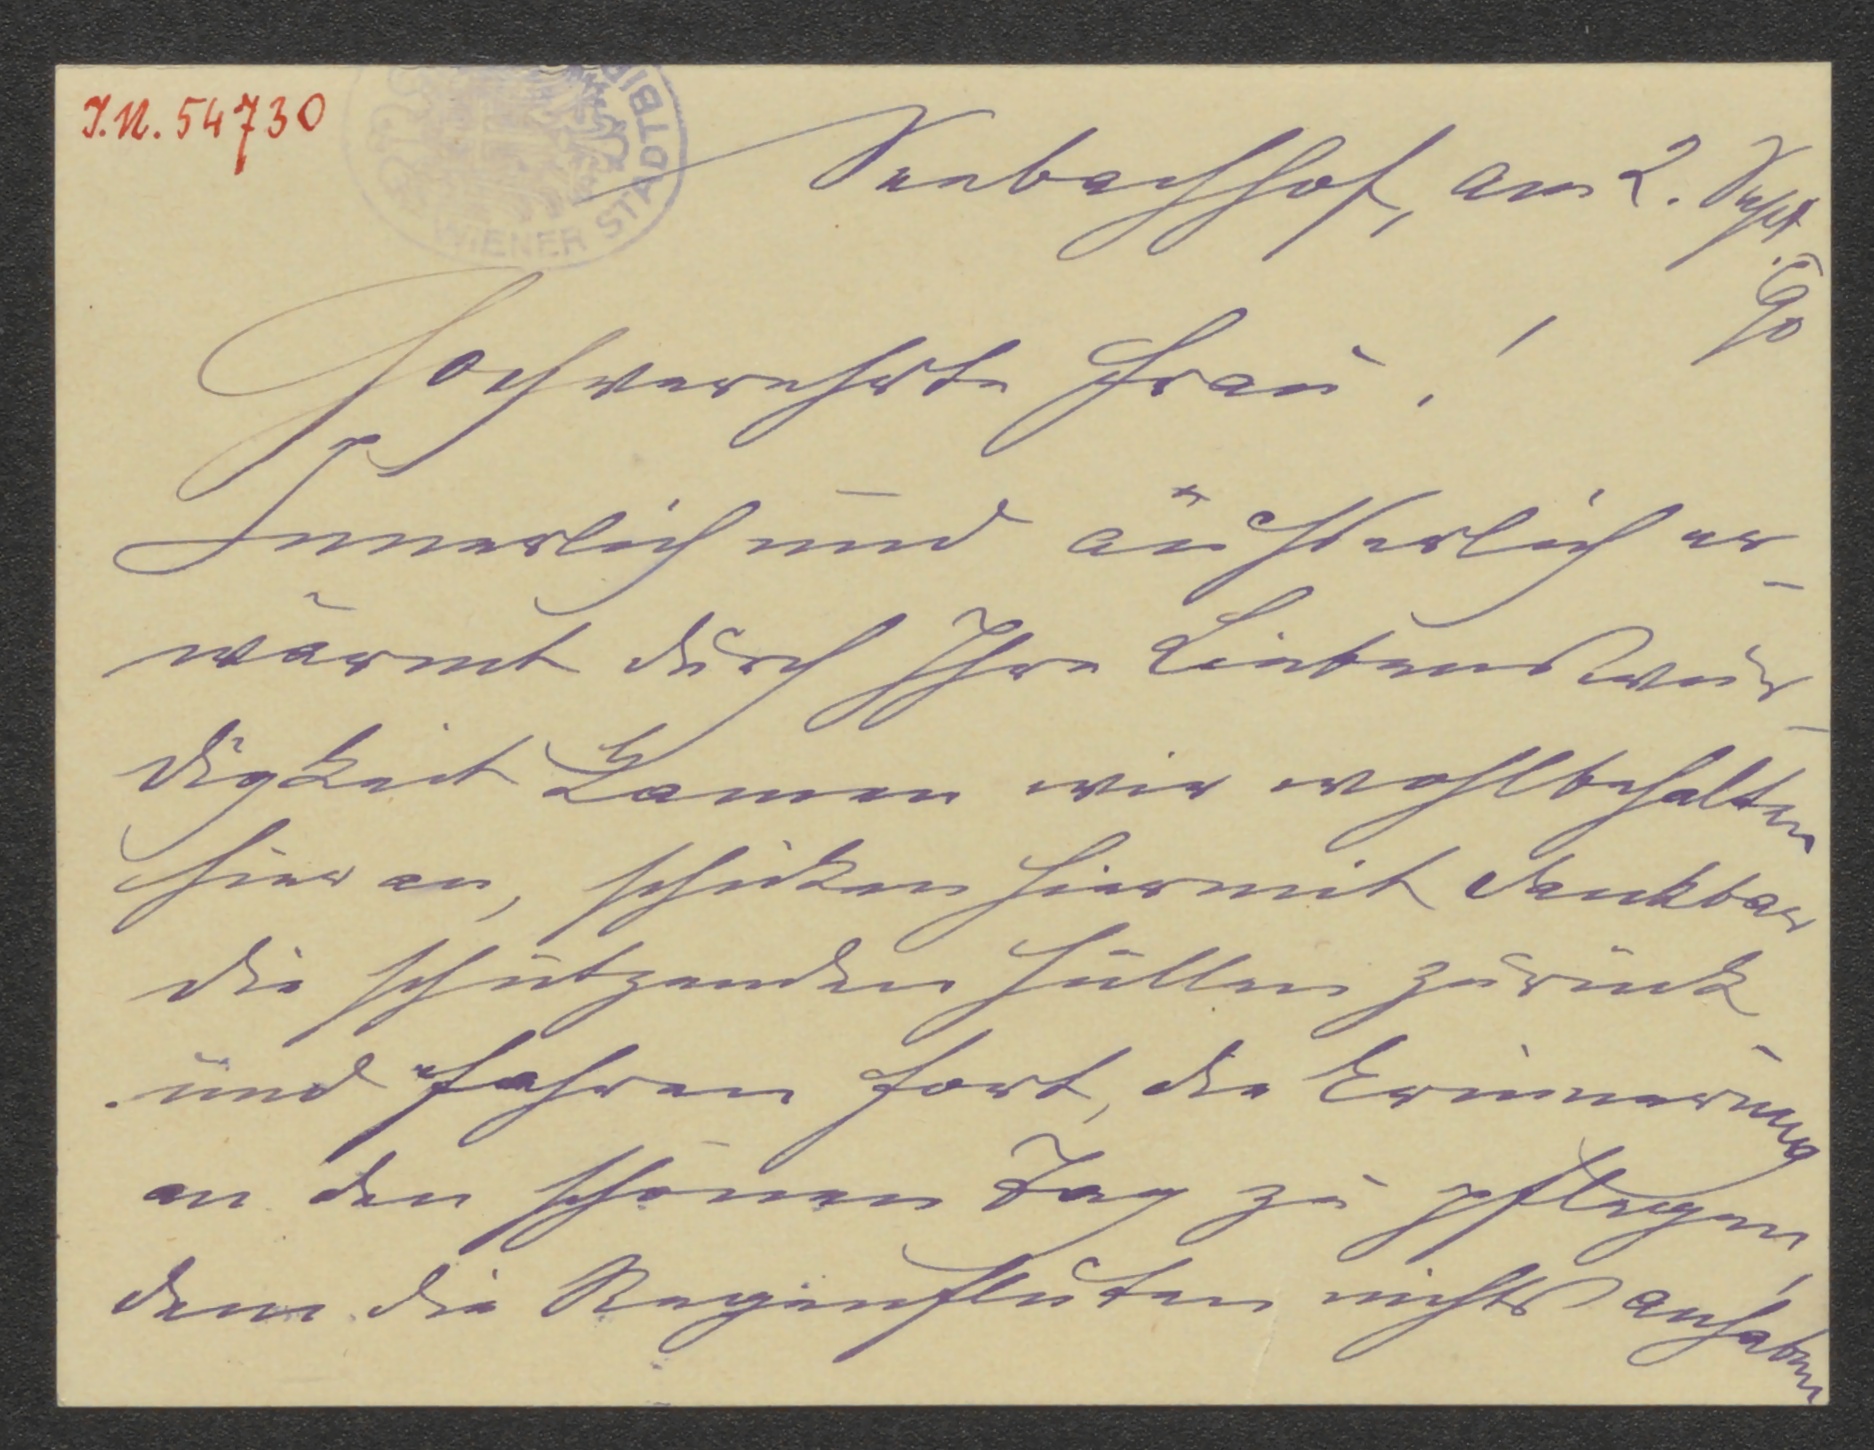 I.N. 54730
WIENER STADTBIB
Seebachhof, am 2. Sept.
90
Hochverehrte Frau!
Innerlich und äußerlich er-
wärmt durch Ihre Liebenswür-
digkeit kamen wir wohlbehalten
hier an, schicken hiermit dankbar
die schützenden Hüllen zurück
und fahren fort, die Erinnerung
an den schönen Tag zu pflegen,
dem die Regenfluten nichts anhaben